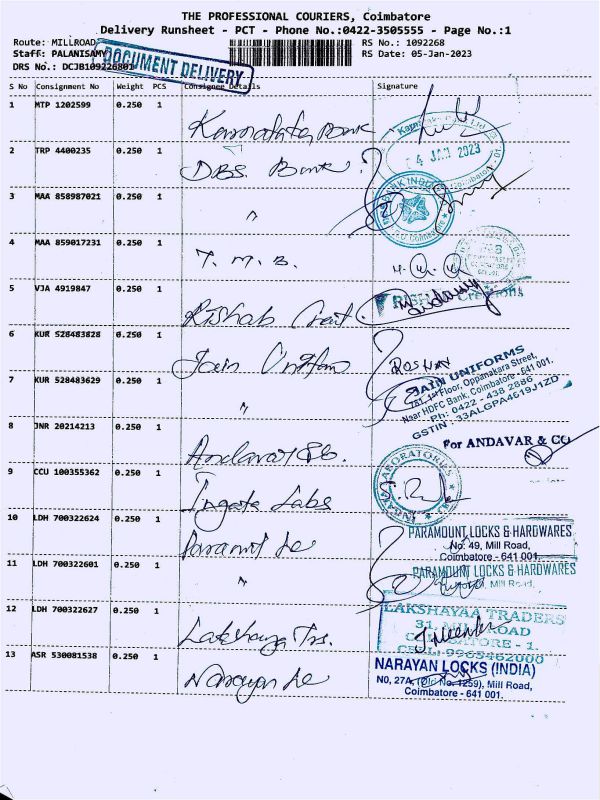 THE PROFESSIONAL COURIERS, Coimbatore
Delivery Runsheet - PCT - Phone No.:0422-3505555 - Page No.:1
Route: MILLROAD RS No.: 1092268
Staff: PALANISAMY RS Date: 05-Jan-2023
DRS No.: DCJB109226801
DOCUMENT DELIVERY
S No Consignment No Weight PCS Consignee Details Signature
1 MTP 1202599 0.250 1 Karnataka Bank
4 JAN 2023
2 TRP 4400235 0.250 1 DBS Bank
3 MAA 858987021 0.250 1 "
4 MAA 859017231 0.250 1 T. M. B.
5 VJA 4919847 0.250 1 Rishab Creat
6 KUR 528483828 0.250 1 Jain Uniform ROSHAN
JAIN UNIFORMS
1st Floor, Oppanakara Street,
Near HDFC Bank, Coimbatore - 641 001.
Ph: 0422 - 438 2886
GSTIN : 33ALGPA4619J1ZD
7 KUR 528483629 0.250 1 "
8 JNR 20214213 0.250 1 Andavar & Co.
For ANDAVAR & CO
9 CCU 100355362 0.250 1 Ingata Labs
10 LDH 700322624 0.250 1 Paramount Lo
PARAMOUNT LOCKS & HARDWARES
No: 49, Mill Road,
Coimbatore - 641 001.
11 LDH 700322601 0.250 1 "
PARAMOUNT LOCKS & HARDWARES
Mill Road,
12 LDH 700322627 0.250 1 Lakshaya Trs.
LAKSHAYAA TRADERS
31, MILL ROAD
COIMBATORE - 1.
CELL: 9965462000
13 ASR 530081538 0.250 1 Narayan Lo
NARAYAN LOCKS (INDIA)
NO, 27A, (Old No. 1259), Mill Road,
Coimbatore - 641 001.